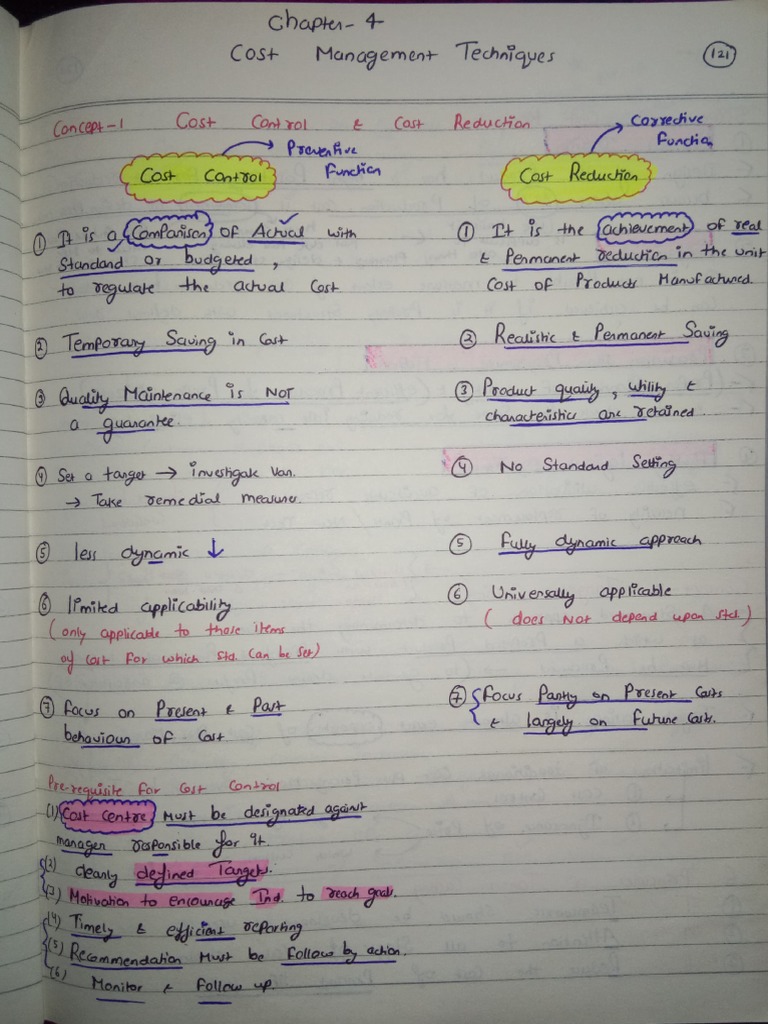 Chapter-4
Cost Management Techniques
121
Concept-1 Cost Control & Cost Reduction
Cost Control → Preventive Function
Cost Reduction → Corrective Function
① It is a Comparison of Actual with
Standard or budgeted,
to regulate the actual Cost
② Temporary Saving in Cost
③ Quality Maintenance is NOT
a guarantee.
④ Set a target → investigate Var.
→ Take remedial measures.
⑤ less dynamic ↓
⑥ limited applicability
(only applicable to those items
of cost for which Std. Can be set)
⑦ Focus on Present & Past
behaviour of Cost
① It is the achievement of real
& Permanent reduction in the unit
Cost of Products Manufactured.
② Realistic & Permanent Saving
③ Product quality, utility &
characteristic are retained.
④ No Standard Setting
⑤ Fully dynamic approach
⑥ Universally applicable
(does NOT depend upon Std.)
⑦ Focus Partly on Present Costs
& largely on Future Costs.
Pre-requisite for Cost Control
(1) Cost Centre Must be designated against
manager responsible for it.
(2) clearly defined Target.
(3) Motivation to encourage Ind. to reach goal.
(4) Timely & efficient reporting
(5) Recommendation Must be Follow by action.
(6) Monitor & Follow up.